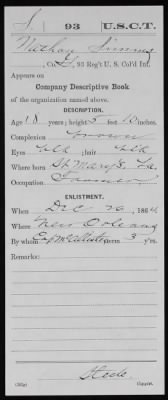 S. | 93 | U.S.C.T.
Nathan Simms
, Co. G, 93 Reg't U. S. Col'd Inf.
Appears on
Company Descriptive Book
of the organization named above.
DESCRIPTION.
Age 18 years; height 5 feet 10 inches.
Complexion brown
Eyes blk; hair blk
Where born St. Mary's, La.
Occupation Farmer
ENLISTMENT.
When Dec 26, 1864
Where New Orleans
By whom McCallister; term 3 y'rs.
Remarks:
Copyist.